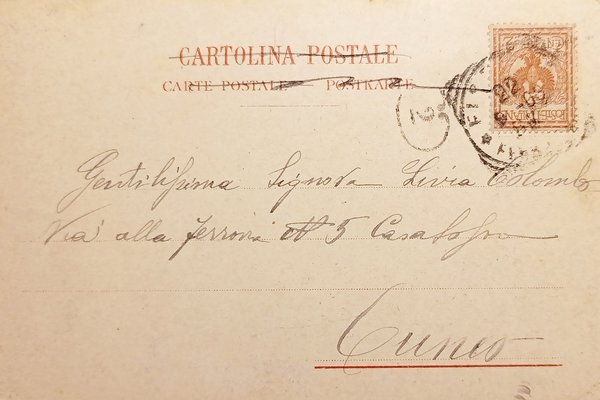 CARTOLINA POSTALE
CARTE POSTALE POSTKARTE
2
Gentilissima Signora Livia Colombo
Via alla ferrovia N 5 Casa
Cuneo